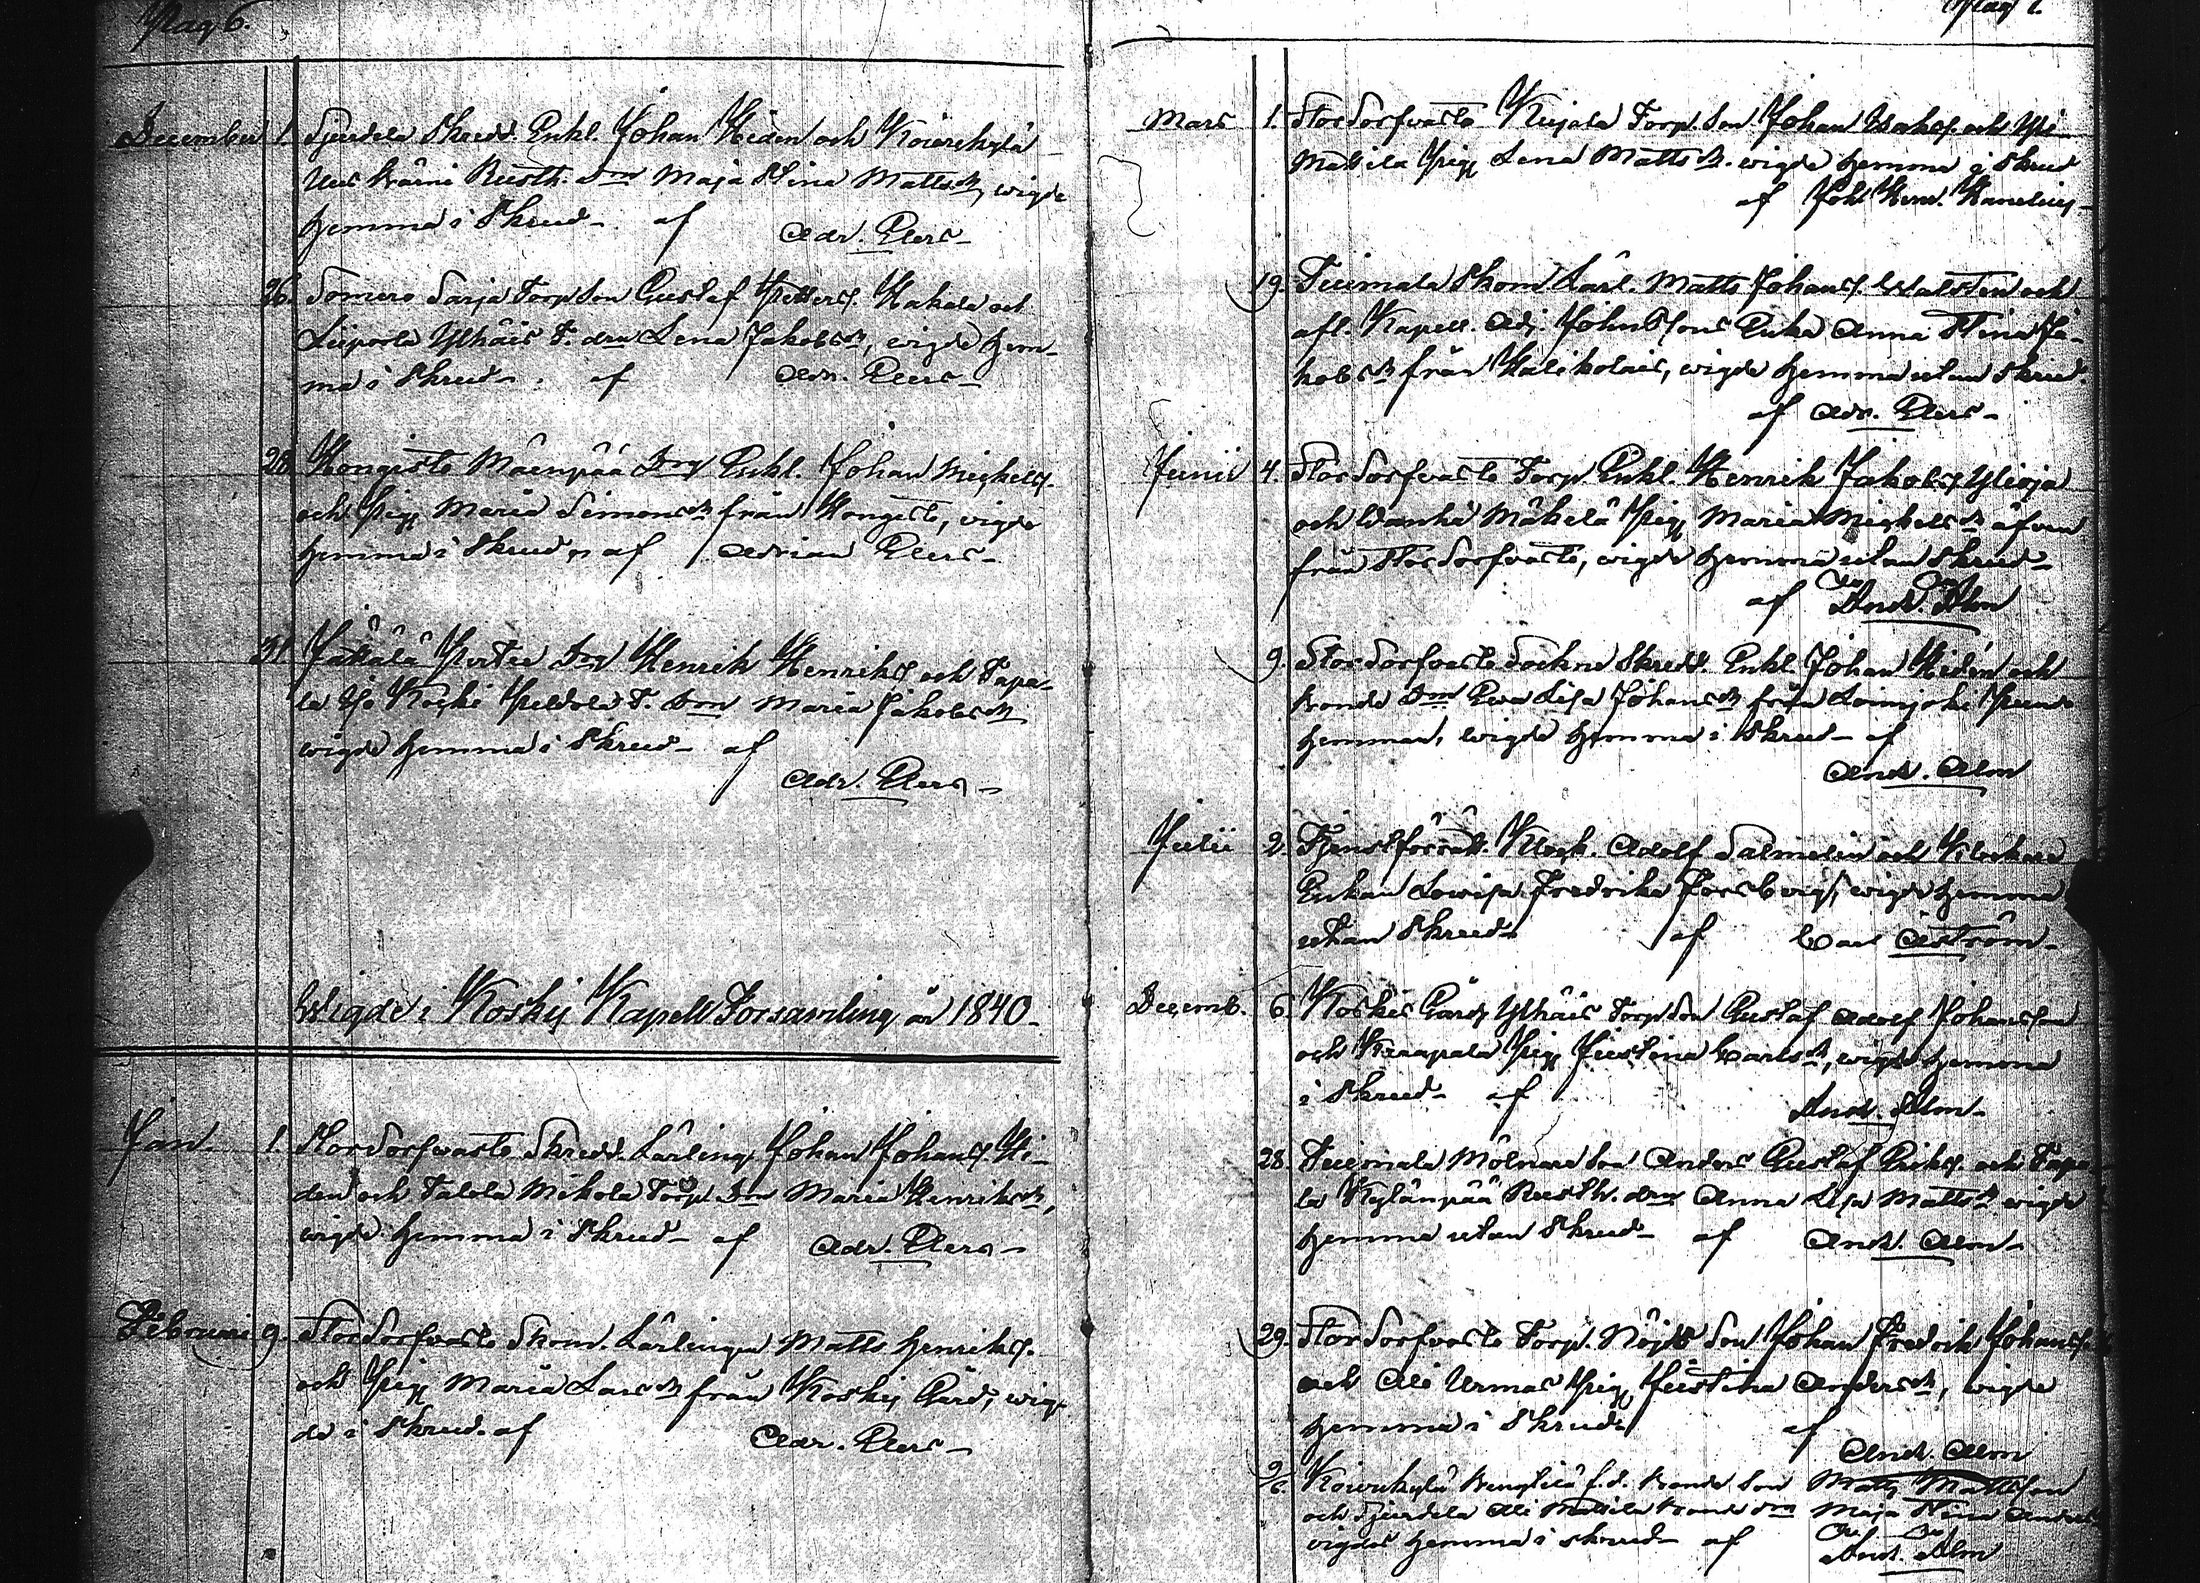 Pag 6.
December 1. Sjundela Skrädd. Enkl. Johan Hiden och Koivukylä
Uus Prami Rusth. dn Maja Stina Mattsdr, wigde
hemma i Skrud af Adr. Elers
26. Somero Sarja Torp. Son Gustaf Petters. Hakala och
Liiporla Ylhäis T. drn Lena Jakobsdr, wigde hem-
ma i Skrud af Adr. Elers
28. Hongisto Mäenpää Drg Enkl. Johan Michels.
och Pig. Maria Simonsdr från Hongisto, wigde
hemma i Skrud, af Adrian Elers
31. Jättälä Perttu Drg Henrik Henriks. och Tapa-
la Yli Koski Peldola T. drn Maria Jakobsdr
wigde hemma i Skrud af
Adr. Elers
Wigde i Koskis Kapell Församling år 1840
Jan. 1. Stor Sorfwasto Skrädd. Lärling Johan Johans. Hi-
den och Talola Mikola Torp. drn Maria Henriksdr,
wigde hemma i Skrud af Adr. Elers
Februari 9. Stor Sorfvasto Skom. Lärlingen Matts Henriks.
och Pig. Maria Larsdr från Koskis Gård, wig-
de i Skrud af Adr. Elers
Pag 7.
Mars 1. Stor Sorfvasto Kujala Torp. Son Johan Isaks. och Yli
Mattila Pig. Lena Mattsdr wigde hemma i Skrud
af Joh. Henr. Hanelius
19. Tuimala Skom. Lärl. Matts Johans. Walstén och
afl. Kapell. Adj. Johnssons Enka Anna Stina Ja-
kobsdr från Halikolais, wigde hemma utan Skrud
af Adr. Elers
Junii 4. Stor Sorfvasto Torp. Enkl. Henrik Jakobs. Ylioja
och Wanhä Mäkelä Pig. Maria Michelsdr äfven
från Stor Sorfvasto, wigde hemma utan Skrud
af And. Alm
9. Stor Sorfvasto Sockne Skrädd. Enkl. Johan Hidén och
Bonde drn Eva Lisa Johansdr från Loimijoki
hemman, wigde hemma i Skrud af
And. Alm
Julii 2. Tjenstförrätt. Klock. Adolf Salmelin och Klockare
Enkan Lowisa Fredrika Forsberg, wigde hemma
utan Skrud af Carl Aström
Decemb. 6. Koskis Gårds Ylhäis Torp. Son Gustaf Adolf Johansson
och Knaapala Pig. Justina Carlsdr, wigde hemma
i Skrud af And. Alm
28. Tuimala Mölnare Son Anders Gustaf Eriks. och Tapa-
la Kylänpää Rusth. drn Anna Lisa Mattsdr wigde
hemma utan Skrud af And. Alm
29. Stor Sorfvasto Torp. Nöjds Son Johan Fredrik Johans.
och Ali Urmas Pig. Justina Andersdr, wigde
hemma i Skrud af
And. Alm
26 Koivukylä f.d. Bonde Son Matts Mattsson
och Sjundela Ali Mattila Bonde drn Maja Stina Anders
vigdes hemma i skrud af And. Alm